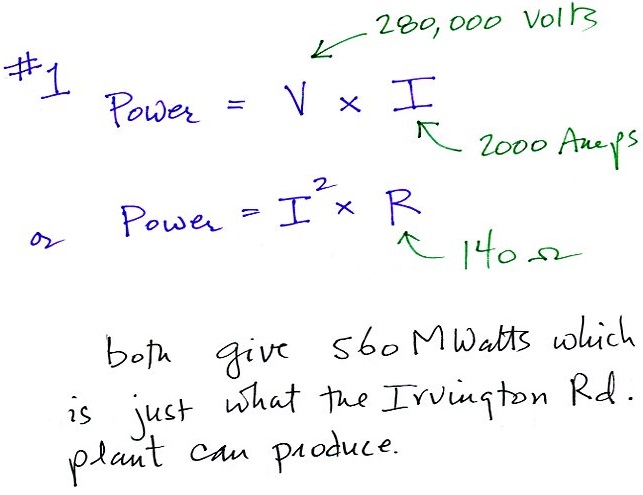 280,000 Volts
#1 Power = V × I
2000 Amps
or Power = I² × R
140 Ω
both give 560 MWatts which
is just what the Irvington Rd.
plant can produce.